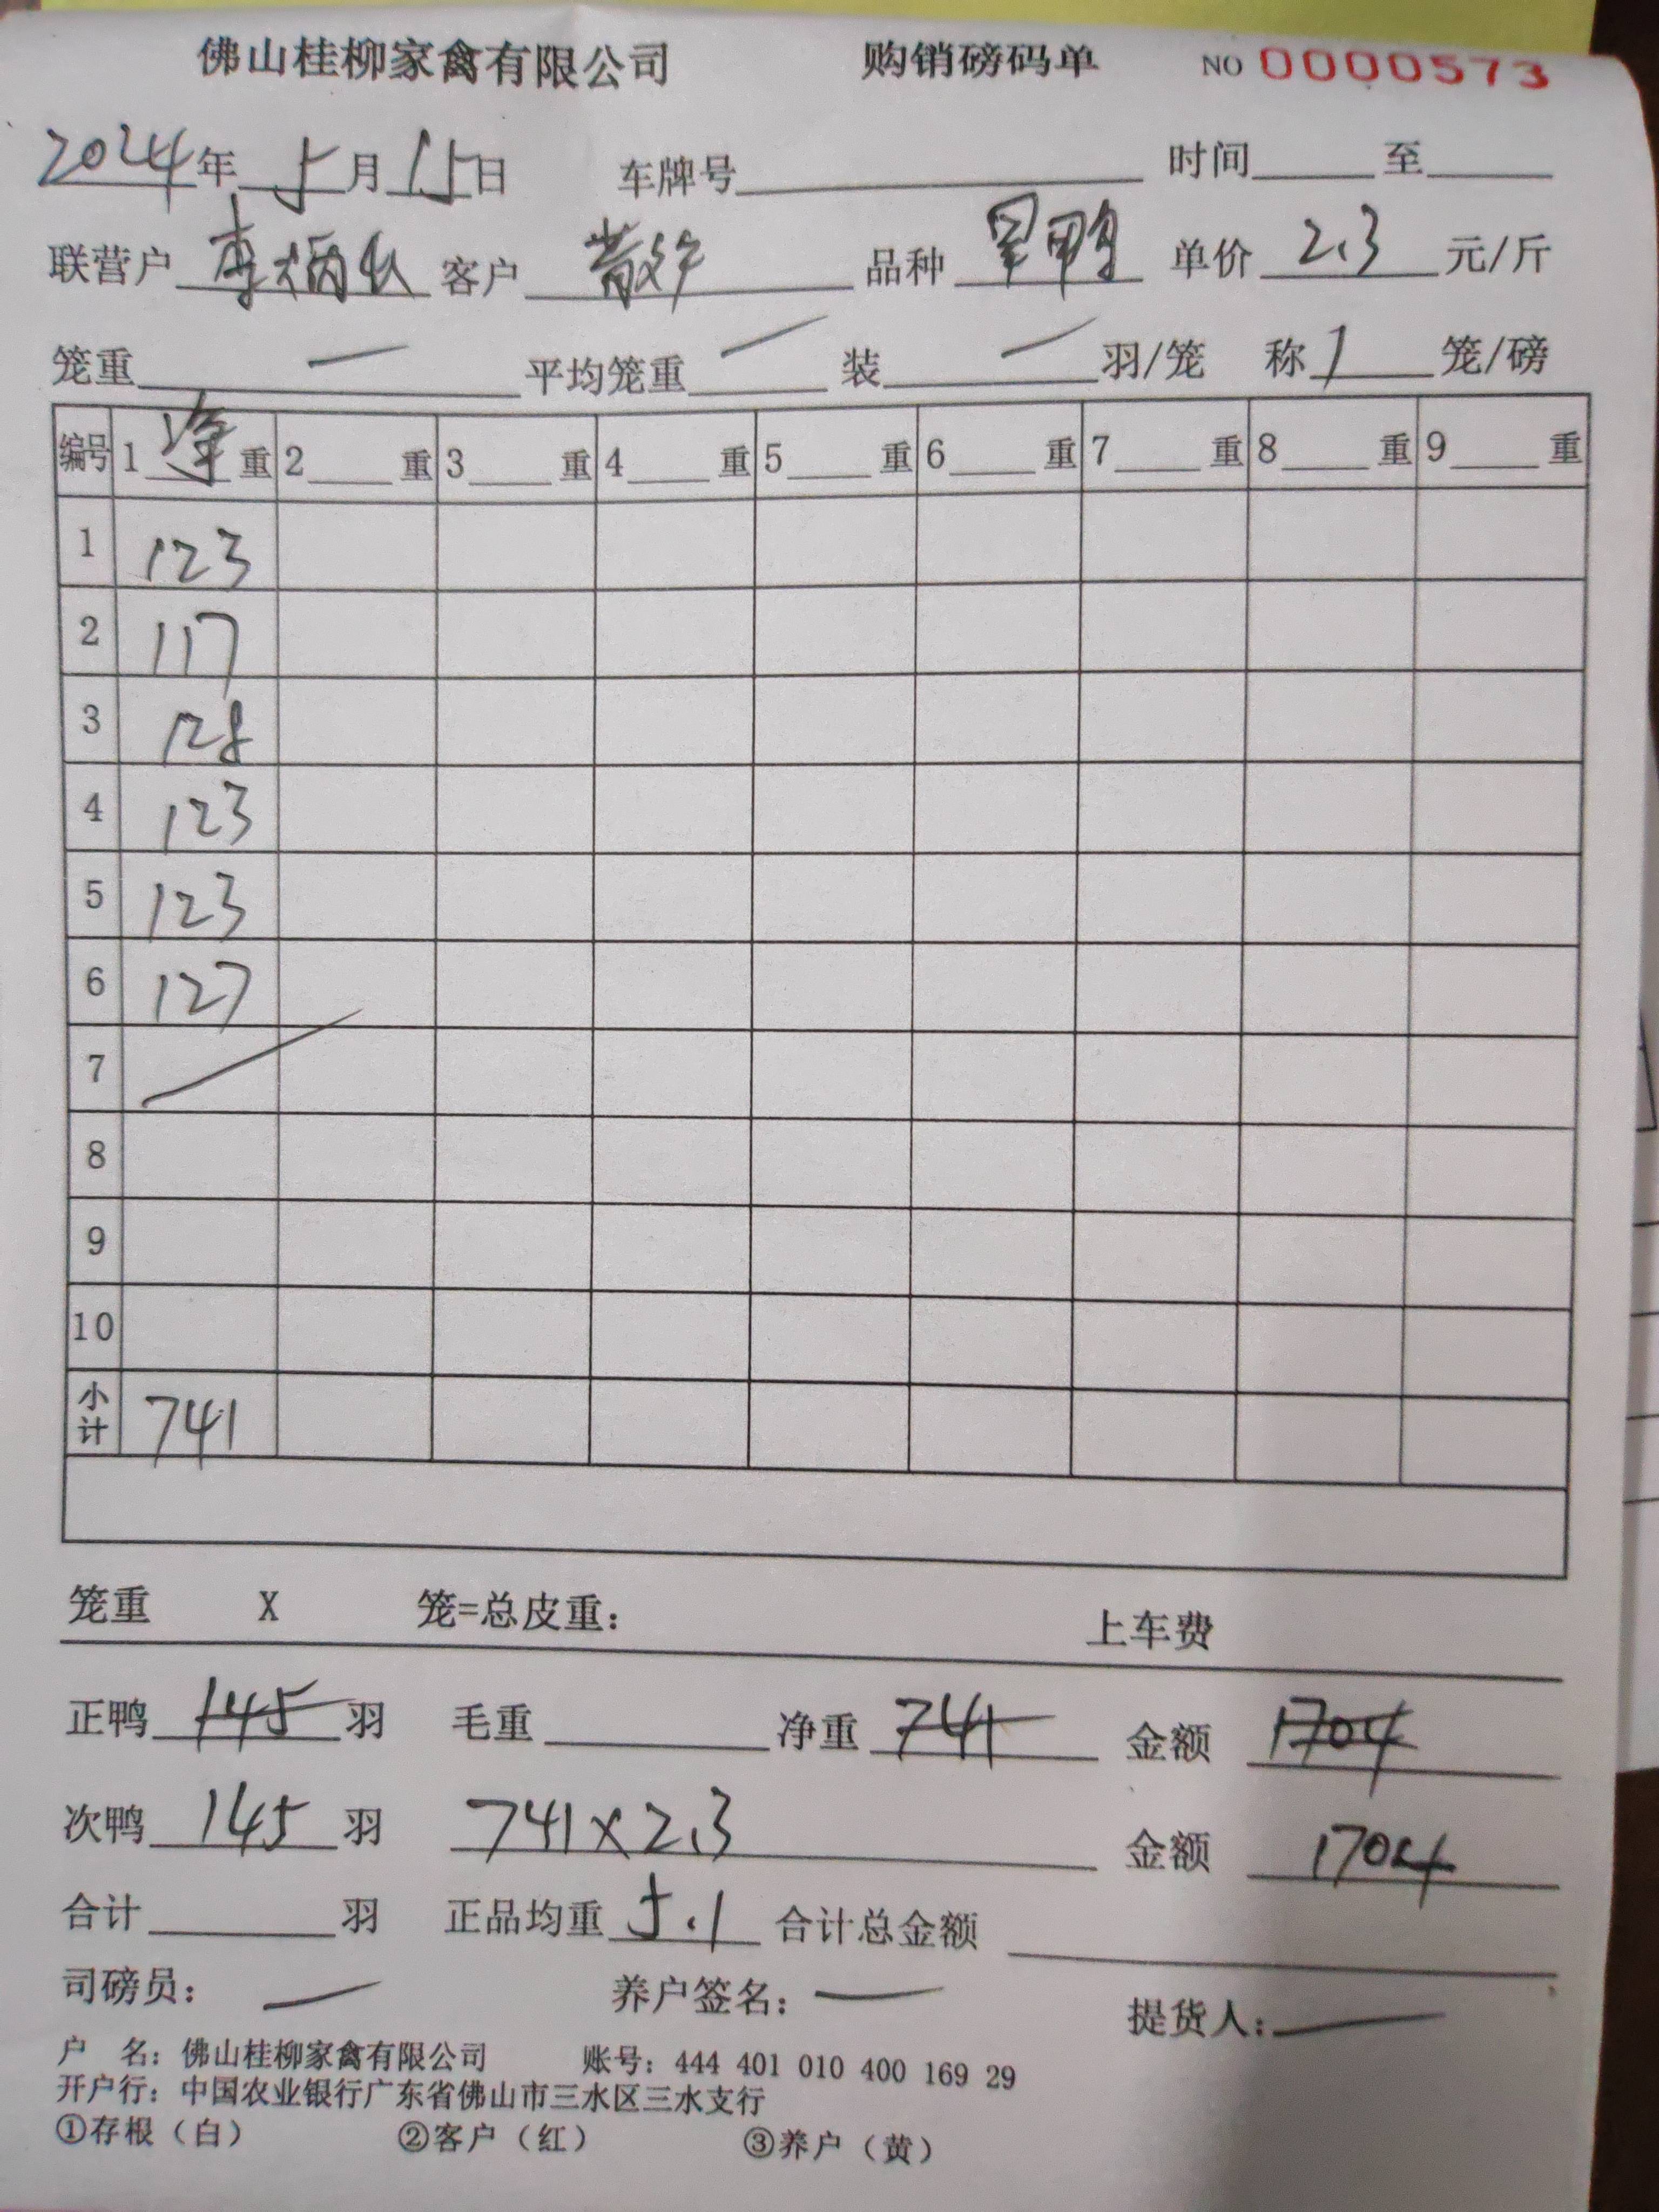 佛山桂柳家禽有限公司 购销磅码单 NO 0000573
2024年 5月 15日 车牌号 时间 至
联营户 李炳 客户 散 品种 鸭 单价 2.3 元/斤
笼重 — 平均笼重 — 装 — 羽/笼 称 1 笼/磅
编号 1 净 重 2 重 3 重 4 重 5 重 6 重 7 重 8 重 9 重
1 123
2 117
3 128
4 123
5 123
6 127
7
8
9
10
小计 741
笼重 X 笼=总皮重： 上车费
正鸭 145 羽 毛重 净重 741 金额 1704
次鸭 145 羽 741×2.3 金额 1704
合计 羽 正品均重 5.1 合计总金额
司磅员： — 养户签名： — 提货人： —
户 名：佛山桂柳家禽有限公司 账号：444 401 010 400 169 29
开户行：中国农业银行广东省佛山市三水区三水支行
①存根（白） ②客户（红） ③养户（黄）